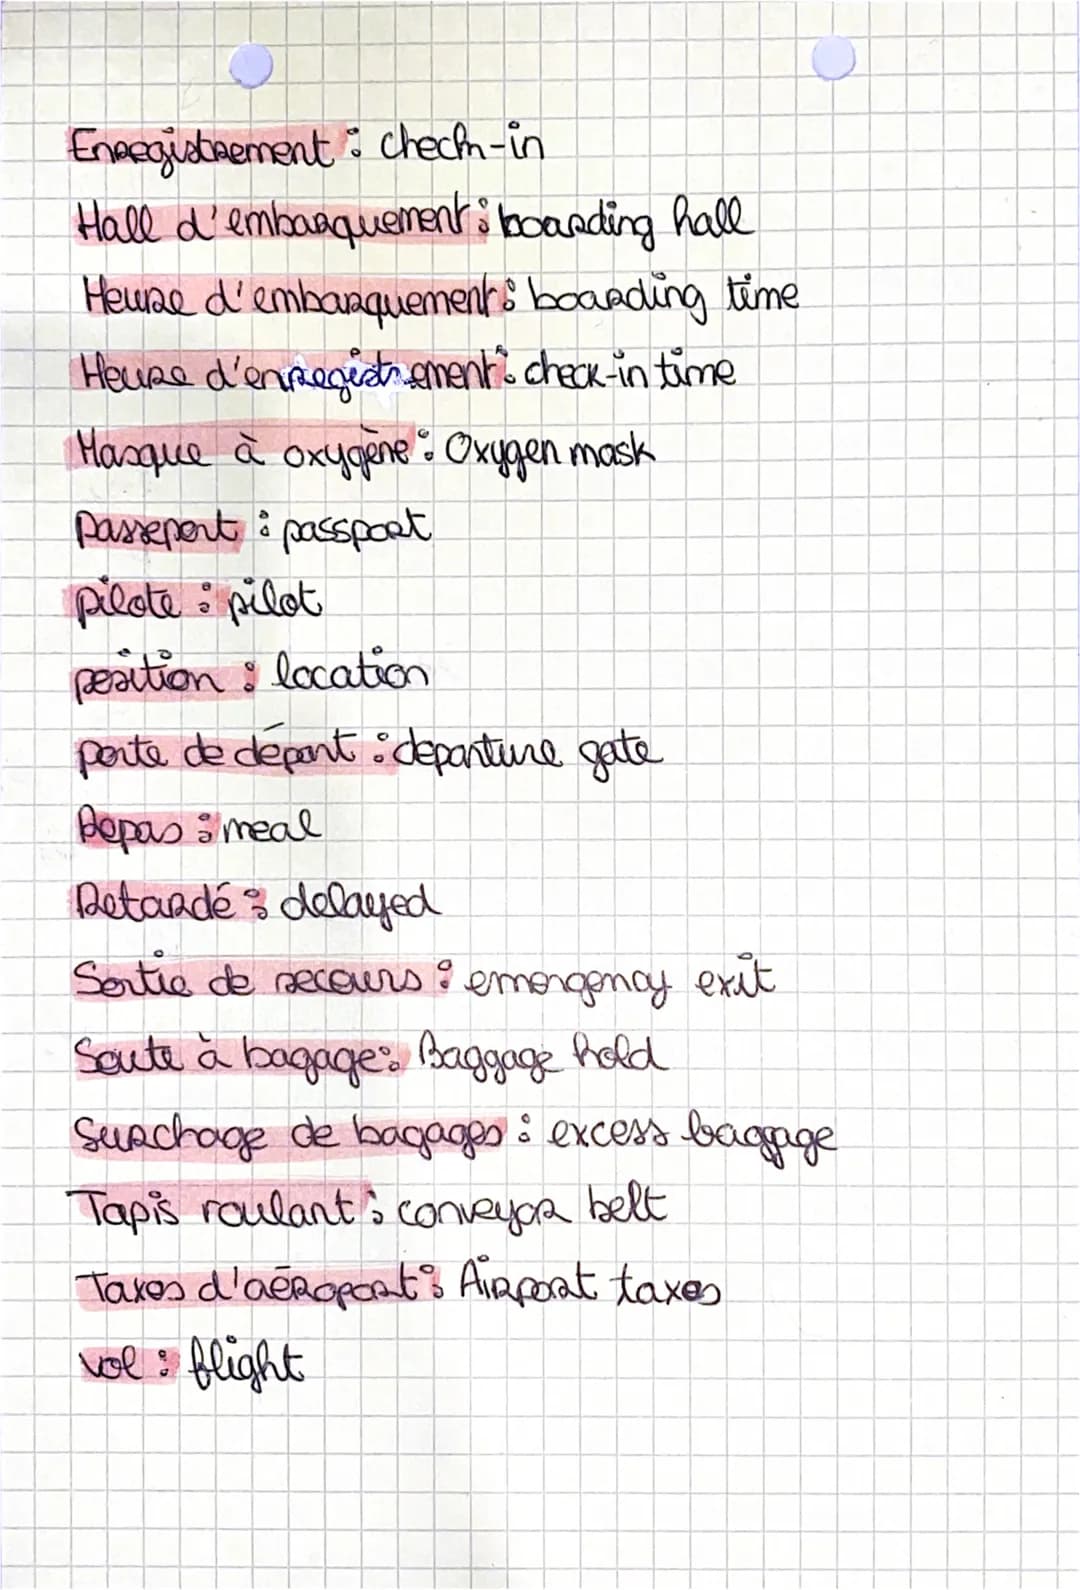 Enregistrement : check-in
Hall d'embarquement : boarding hall
Heure d'embarquement : boarding time
Heure d'enregistrement : check-in time
Masque à oxygène : Oxygen mask
Passeport : passport
pilote : pilot
position : location
porte de départ : departure gate
Repas : meal
Retardé : delayed
Sortie de secours : emergency exit
Soute à bagage : Baggage hold
Surchage de bagages : excess baggage
Tapis roulant : conveyor belt
Taxes d'aéroport : Airport taxes
vol : flight